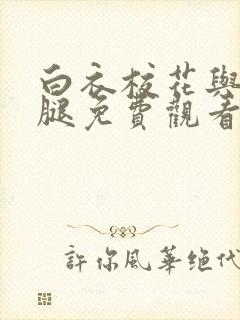 白衣校花與
腿免費觀看
許你風華绝代